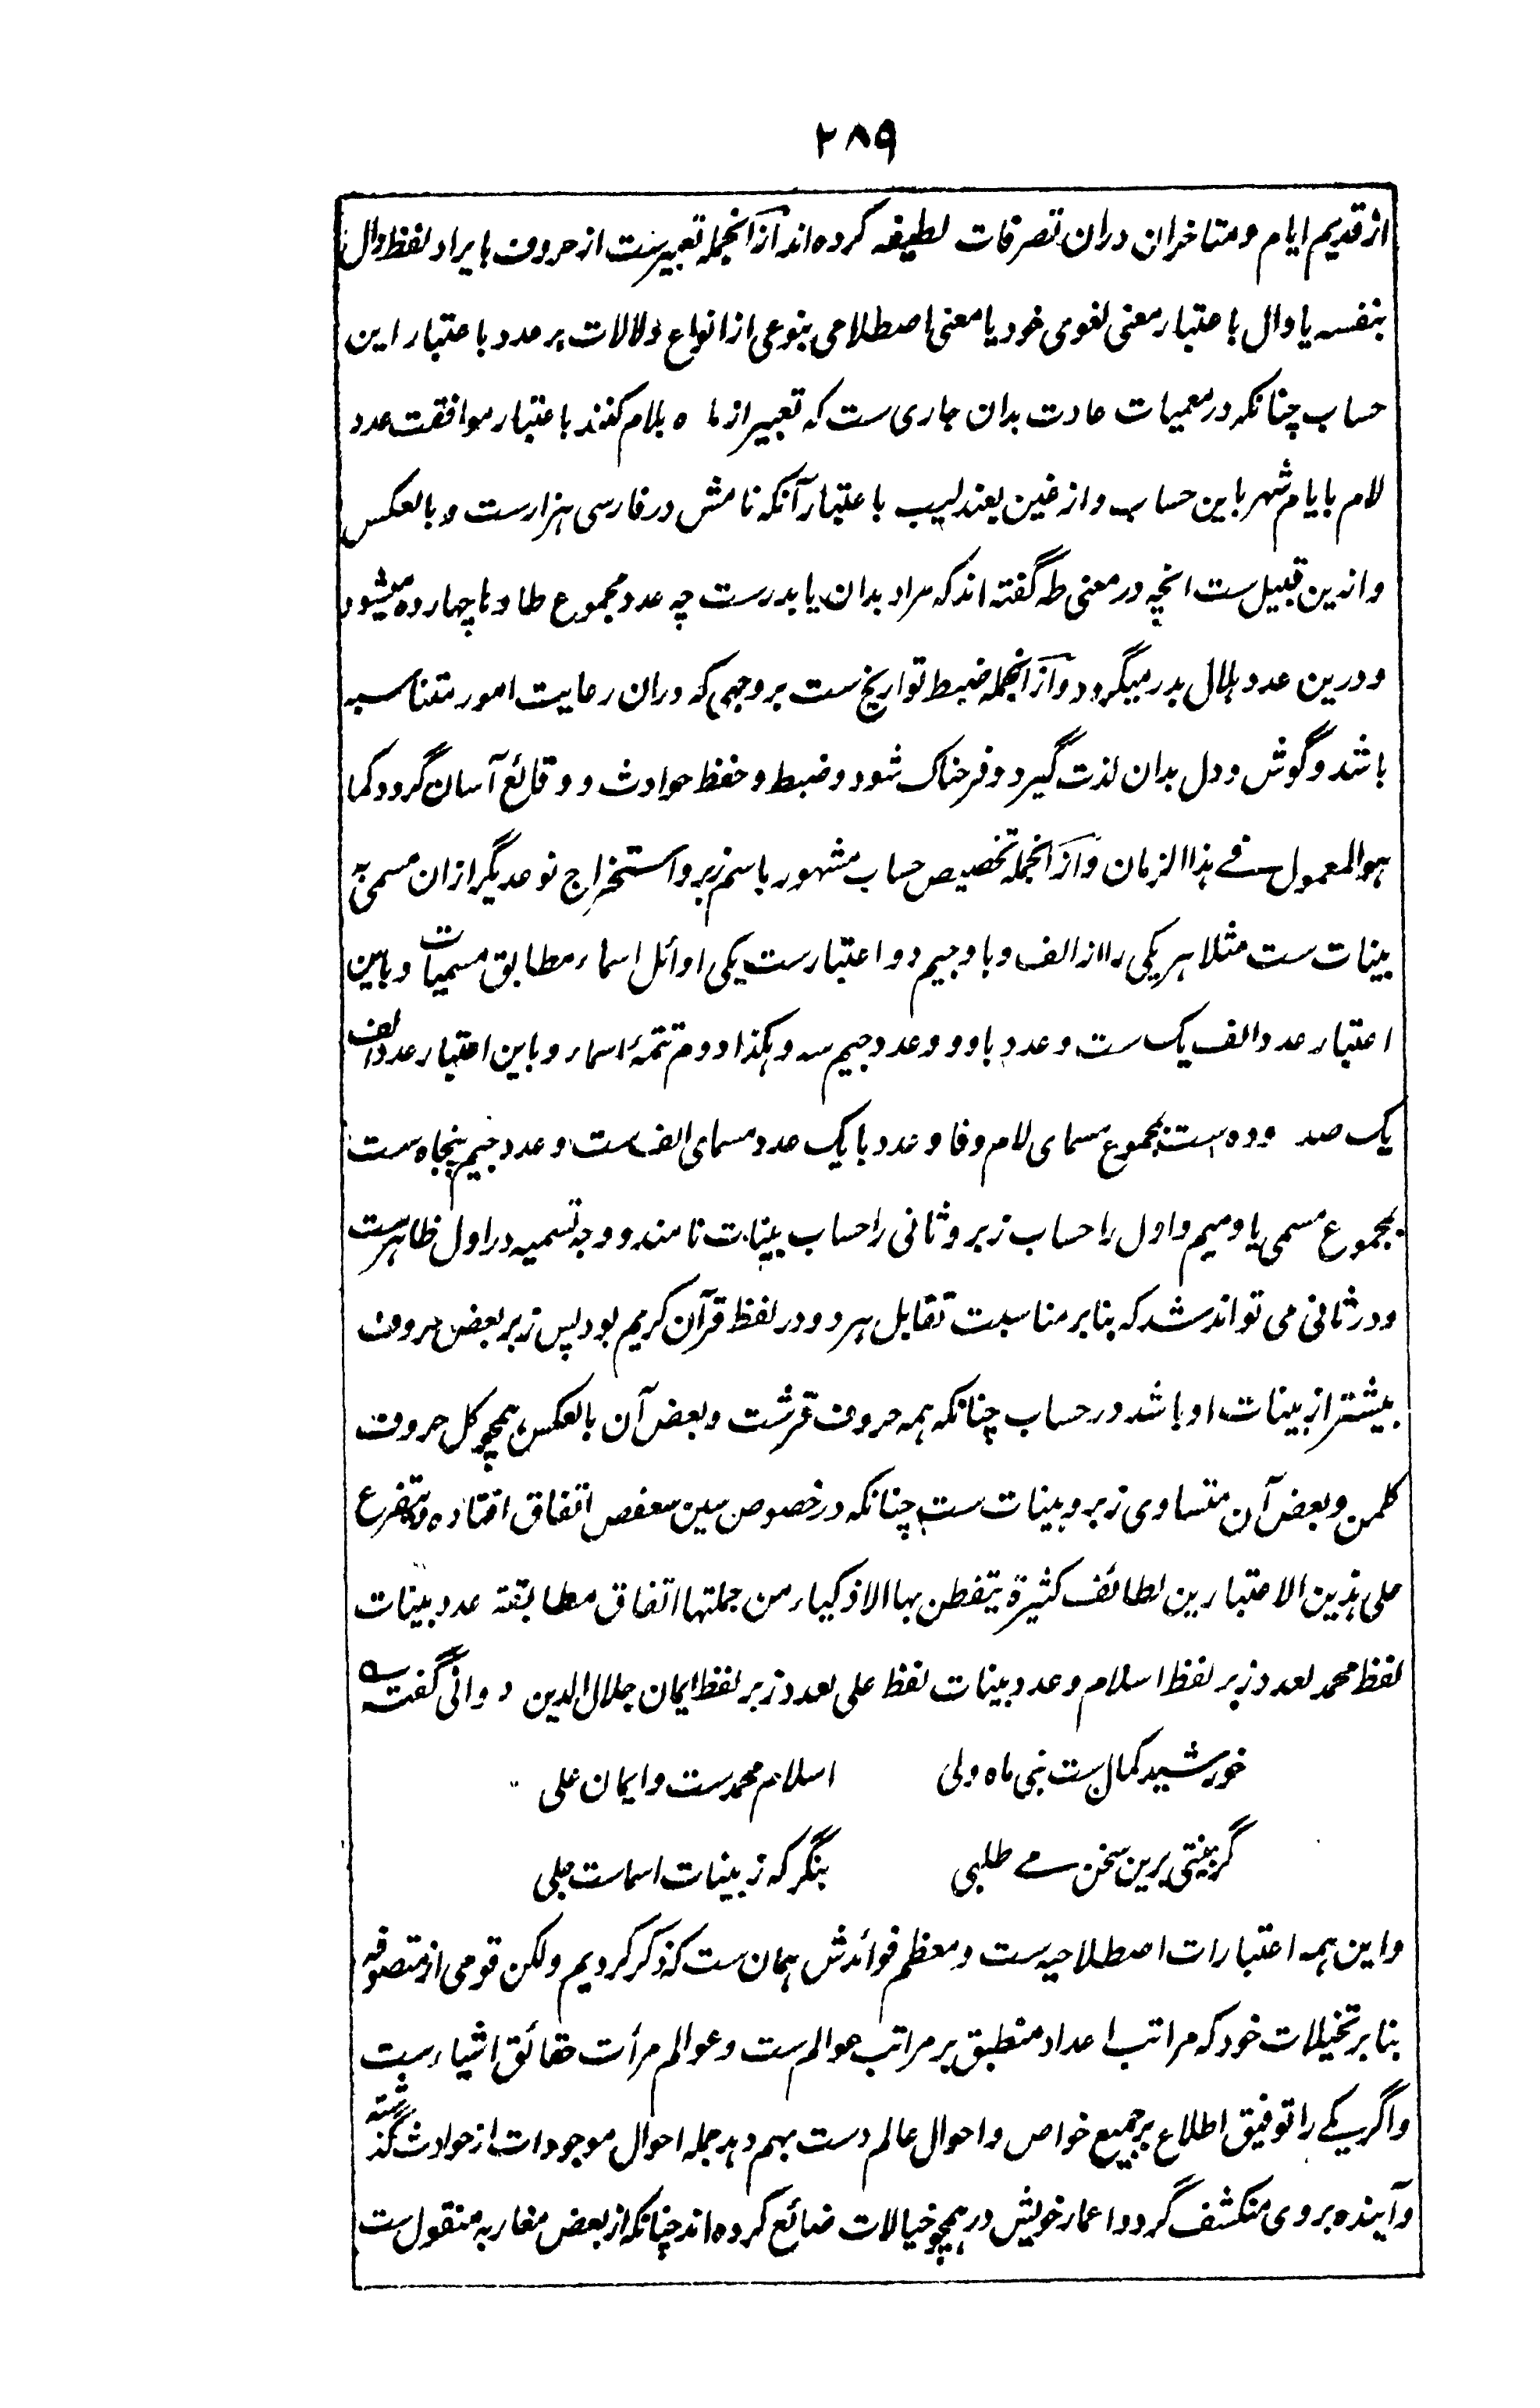 ۲۸۹
از قدیم ایام و متاخران دران تصرفات لطیفه کرده‌اند ازانجمله تعبیرست از حروف بایراد لفظ دال
بنفسه یا دال باعتبار معنی لغوی خود یا معنی اصطلاحی بنوعی از انواع دلالات بر عدد باعتبار این
حساب چنانکه در معمیات عادت بدان جاری ست که تعبیر از ماه بلام کنند باعتبار موافقت عدد
لام بایام شهر باین حساب و از غین بعندلیب باعتبار آنکه نامش در فارسی هزارست و بالعکس
و ازین قبیل ست انچه در معنی طه گفته‌اند که مراد بدان یا بدرست چه عدد مجموع طا و ها چهارده میشود
و درین عدد هلال بدر میگردد و ازانجمله ضبط تواریخ ست بر وجهی که دران رعایت امور متناسبه
باشد و گوش و دل بدان لذت گیرد و فرحناک شود و ضبط و حفظ حوادث و وقائع آسان گردد کما
هو المعمول فی هذا الزمان و ازانجمله تخصیص حساب مشهور باسم زبر و استخراج نوعدیگر ازان مسمی به
بینات ست مثلا هر یکی را از الف و با و جیم دو اعتبارست یکی اوائل اسماء مطابق مسمیات و باین
اعتبار عدد الف یک ست و عدد با دو و عدد جیم سه و هکذا دوم تتمهٔ اسماء و باین اعتبار عدد الف
یک صد و ده ست مجموع مسمای لام و فا و عدد با یک عدد مسمای الف ست و عدد جیم پنجاه ست
مجموع مسمی یا و میم و اول را حساب زبر و ثانی را حساب بینات نامند و وجه تسمیه در اول ظاهرست
و در ثانی می تواند شد که بنابر مناسبت تقابل هر دو در لفظ قرآن کریم بود پس زبر بعض حروف
بیشتر از بینات او باشد در حساب چنانکه همه حروف قرشت و بعض آن بالعکس همچو کل حروف
کلمن و بعض آن متساوی زبر و بینات ست چنانکه در خصوص سین سعفص اتفاق افتاده و یتفرع
علی هذین الاعتبارین لطائف کثیرة یتفطن بها الاذکیاء من جملتها اتفاق مطابقة عدد بینات
لفظ محمد بعدد زبر لفظ اسلام و عدد بینات لفظ علی بعدد زبر لفظ ایمان جلال الدین دوانی گفته
خورشید کمال ست نبی ماه ولی اسلام محمدست و ایمان علی
گر بینتی برین سخن می طلبی بنگر که ز بینات اسماست جلی
و این همه اعتبارات اصطلاحیه ست و معظم فوائدش همان ست که ذکر کردیم و لکن قومی از متصوفه
بنابر تخیلات خود که مراتب اعداد منطبق بر مراتب عوالم ست و عوالم مرأت حقائق اشیاء ست
و اگر یکے را توفیق اطلاع بر جمیع خواص و احوال عالم دست بهم دهد جمله احوال موجودات از حوادث گذشته
و آینده بر وی منکشف گردد اعمار خویش در همچو خیالات ضائع کرده‌اند چنانکه از بعض مغاربه منقول ست